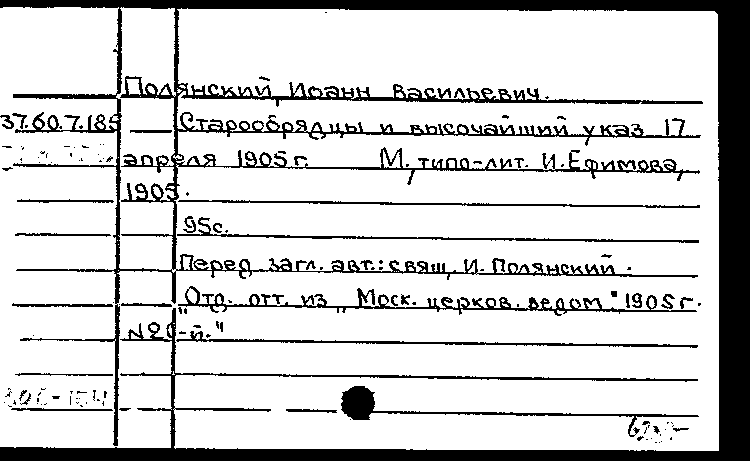 Полянский, Иоанн Васильевич.
37.60.7.185 Старообрядцы и высочайший указ 17
апреля 1905 г. М., типо-лит. И. Ефимова,
1905.
95с.
Перед загл. авт.: свящ. И. Полянский.
"Отд. отт. из „Моск. церков. ведом." 1905 г.
-й."